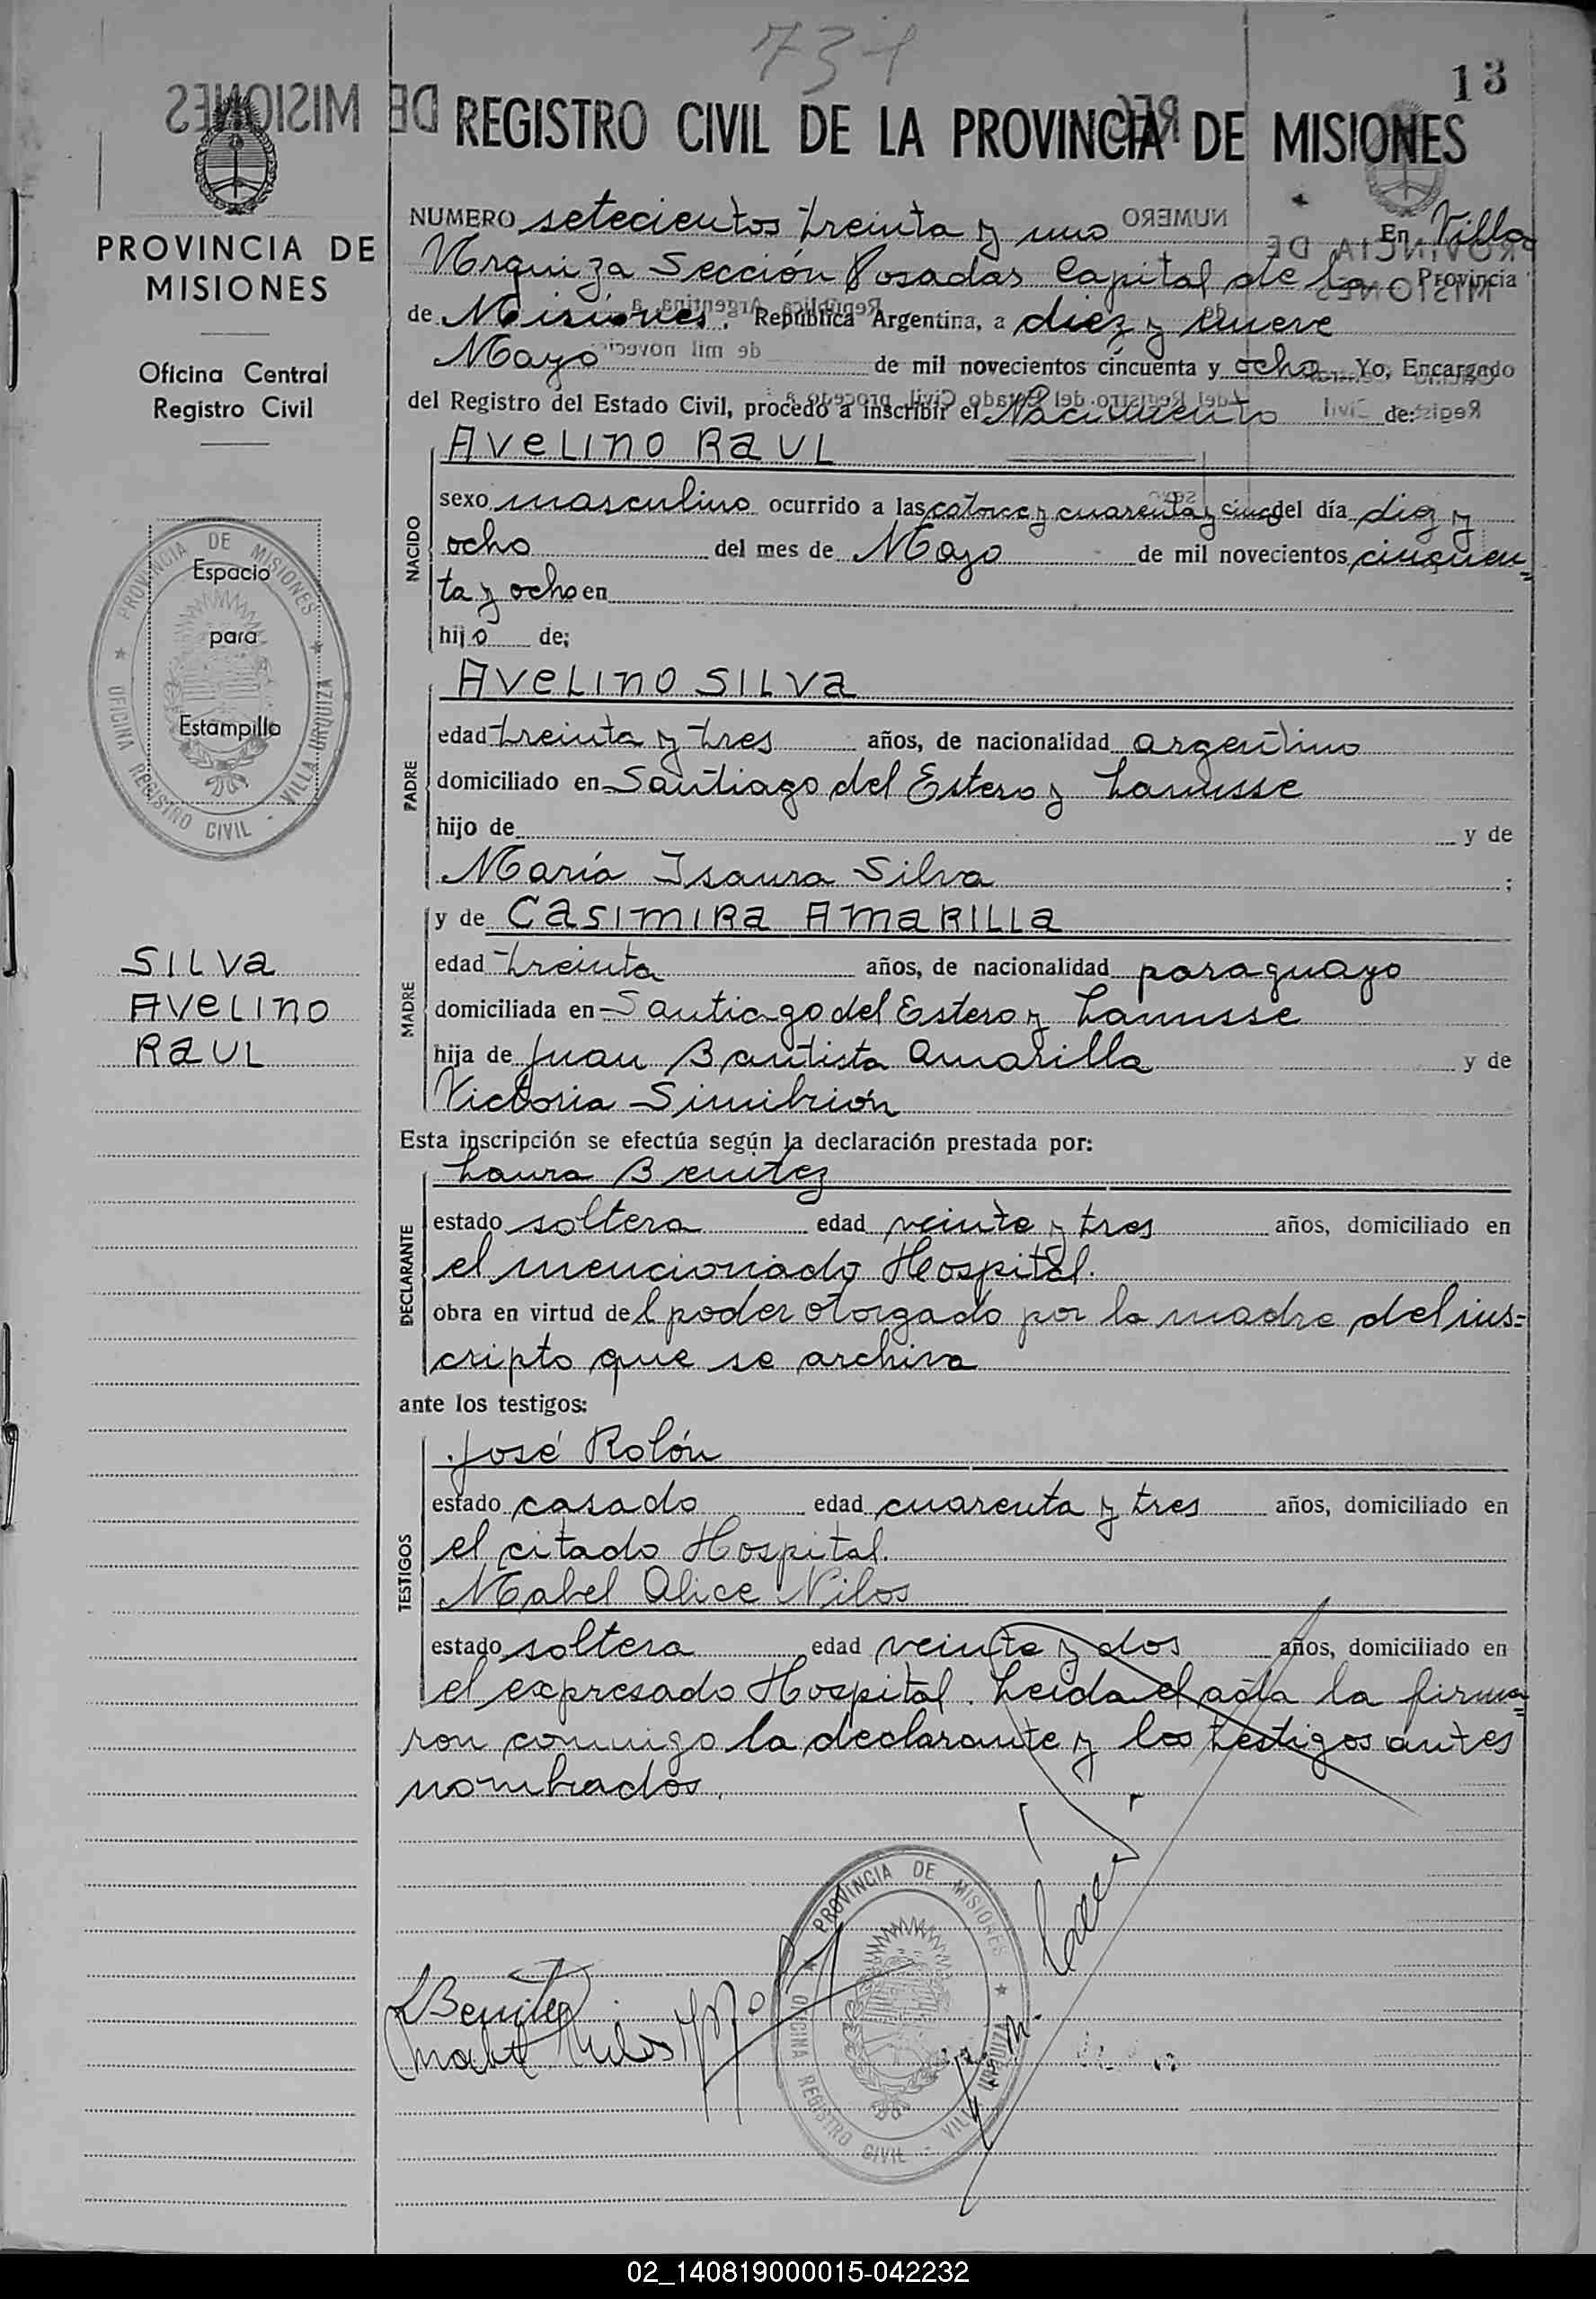 731
13
REGISTRO CIVIL DE LA PROVINCIA DE MISIONES
PROVINCIA DE
MISIONES
Oficina Central
Registro Civil
PROVINCIA DE MISIONES
OFICINA REGISTRO CIVIL - VILLA URQUIZA
Espacio
para
Estampilla
SILVA
AVELINO
RAUL
NUMERO setecientos treinta y uno En Villa
Urquiza Sección Posadas Capital de la Provincia
de Misiones, República Argentina, a diez y nueve
Mayo de mil novecientos cincuenta y ocho Yo, Encargado
del Registro del Estado Civil, procedo a inscribir el Nacimiento de:
NACIDO
AVELINO RAUL
sexo masculino ocurrido a las catorce y cuarenta y cinco del día diez y
ocho del mes de Mayo de mil novecientos cincuen=
ta y ocho en
hijo de:
PADRE
AVELINO SILVA
edad treinta y tres años, de nacionalidad argentino
domiciliado en Santiago del Estero y Lanusse
hijo de y de
María Isaura Silva ;
MADRE
y de CASIMIRA AMARILLA
edad treinta años, de nacionalidad paraguayo
domiciliada en Santiago del Estero y Lanusse
hija de Juan Bautista Amarilla y de
Victoria Simbrión
Esta inscripción se efectúa según la declaración prestada por:
DECLARANTE
Laura Benitez
estado soltera edad veinte y tres años, domiciliado en
el mencionado Hospital.
obra en virtud del poder otorgado por la madre del ins=
cripto que se archiva
ante los testigos:
TESTIGOS
José Rolón
estado casado edad cuarenta y tres años, domiciliado en
el citado Hospital.
Mabel Alice Nilos
estado soltera edad veinte y dos años, domiciliado en
el expresado Hospital. Leida el acta la firma=
ron conmigo la declarante y los testigos antes
nombrados.
LBenitez
PROVINCIA DE MISIONES
OFICINA REGISTRO CIVIL - VILLA URQUIZA
02_140819000015-042232